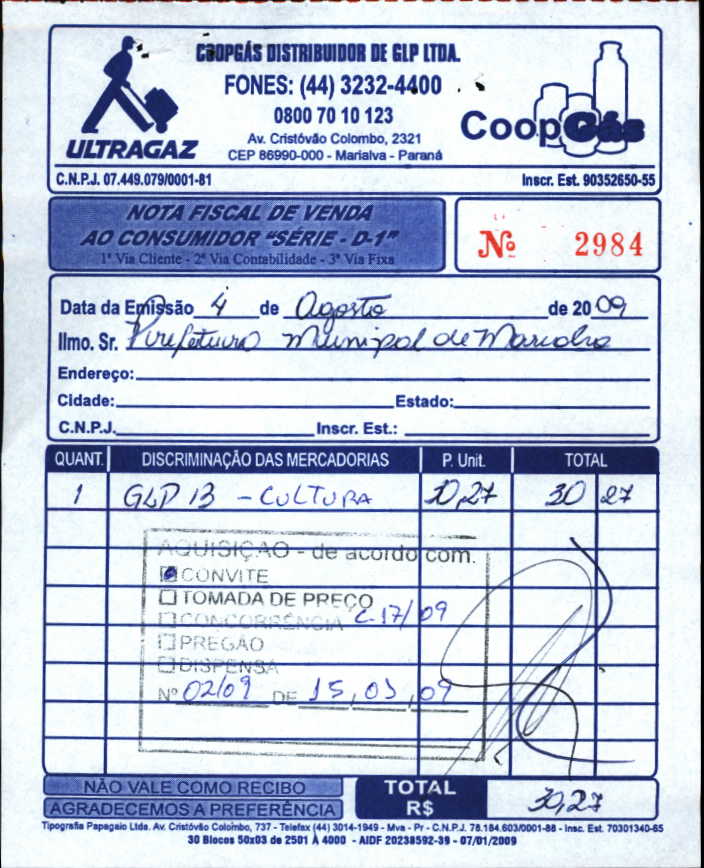 COOPGÁS DISTRIBUIDOR DE GLP LTDA.
FONES: (44) 3232-4400
0800 70 10 123
Av. Cristóvão Colombo, 2321
CEP 86990-000 - Marialva - Paraná
ULTRAGAZ
CoopGás
C.N.P.J. 07.449.079/0001-81 Inscr. Est. 90352650-55
NOTA FISCAL DE VENDA
AO CONSUMIDOR "SÉRIE - D-1"
1ª Via Cliente - 2ª Via Contabilidade - 3ª Via Fixa
Nº 2984
Data da Emissão 4 de Agosto de 2009
Ilmo. Sr. Prefeitura Municipal de Marialva
Endereço:
Cidade: Estado:
C.N.P.J. Inscr. Est.:
QUANT. DISCRIMINAÇÃO DAS MERCADORIAS P. Unit. TOTAL
1 GLP 13 - CULTURA 30,27 30 27
AQUISIÇÃO - de acordo com.
CONVITE
TOMADA DE PREÇO
CONCORRÊNCIA C-17/09
PREGÃO
DISPENSA
Nº 02/09 DE 15, 03, 09
NÃO VALE COMO RECIBO
AGRADECEMOS A PREFERÊNCIA
TOTAL R$ 30,27
Tipografia Papagaio Ltda. Av. Cristóvão Colombo, 737 - Telefax (44) 3014-1949 - Mva - Pr - C.N.P.J. 78.184.603/0001-88 - Insc. Est. 70301340-65
30 Blocos 50x03 de 2501 À 4000 - AIDF 20238592-39 - 07/01/2009